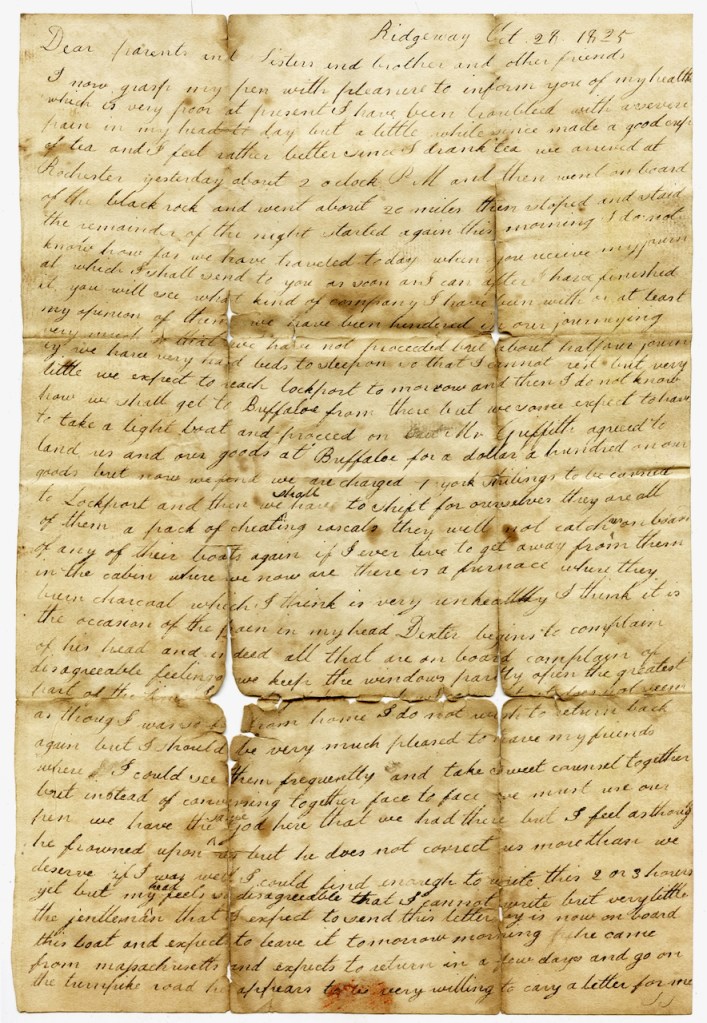 Ridgeway Oct. 28 1825
Dear parents and Sisters and brother and other friends
I now grasp my pen with pleasure to inform you of my health
which is very poor at present I have been troubled with a severe
pain in my head to day but a little while since made a good cup
of tea and I feel rather better since I drank tea we arrived at
Rochester yesterday about 2 oclock P.M and then went on board
of the black rock and went about 20 miles then stoped and staid
the remainder of the night started again this morning I do not
know how far we have traveled today when you receive my journ
al which I shall send to you as soon as I can after I have finished
it you will see what kind of company I have been with or at least
my opinion of them we have been hindered in our journeying
very much so that we have not proceded but about half our journ
ey we have very hard beds to sleep on so that I cannot rest but very
little we expect to reach Lockport to morrow and then I do not know
how we shall get to Buffaloe from there but we some expect to have
to take a light boat and proceed on Mr Griffith agreed to
land us and our goods at Buffaloe for a dollar a hundred on our
goods but now we find we are charged 4 york shilings to be carried
to Lockport and then we shall have to shift for ourselves they are all
of them a pack of cheating rascals they will not catch me on board
of any of their boats again if I ever live to get away from them
in the cabin where we now are there is a furnace where they
burn charcoal which I think is very unhealthy I think it is
the occasion of the pain in my head Dexter begins to complain
of his head and indeed all that are on board complain of
disagreeable feelings we keep the windows partly open the greatest
part of the time does not seem
as thoug I was so from home I do not wish to return back
again but I should be very much pleased to have my friends
where I could see them frequently and take sweet counsel together
but instead of conversing together face to face we must use our
pen we have the same God here that we had there but I feel as though
he frowned upon us but he does not correct us more than we
deserve if I was well I could find enough to write this 2 or 3 hours
yet but my head feels so disagreeable that I cannot write but very little
the jentleman that I expect to send this letter by is now on board
this boat and expects to leave it tomorrow morning he came
from massachusetts and expects to return in a few days and go on
the turnpike road he appears to be very willing to cary a letter for me